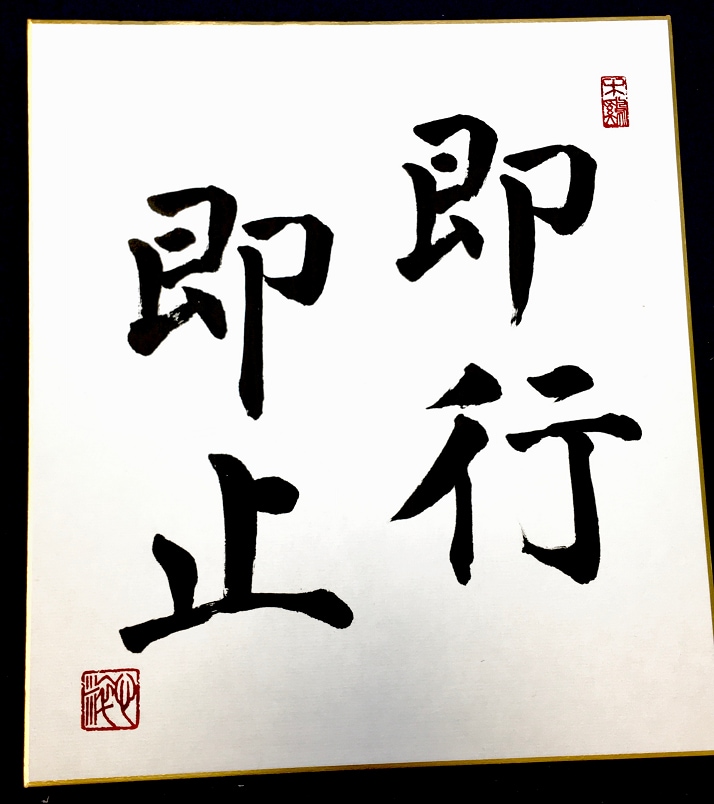 即行
即止